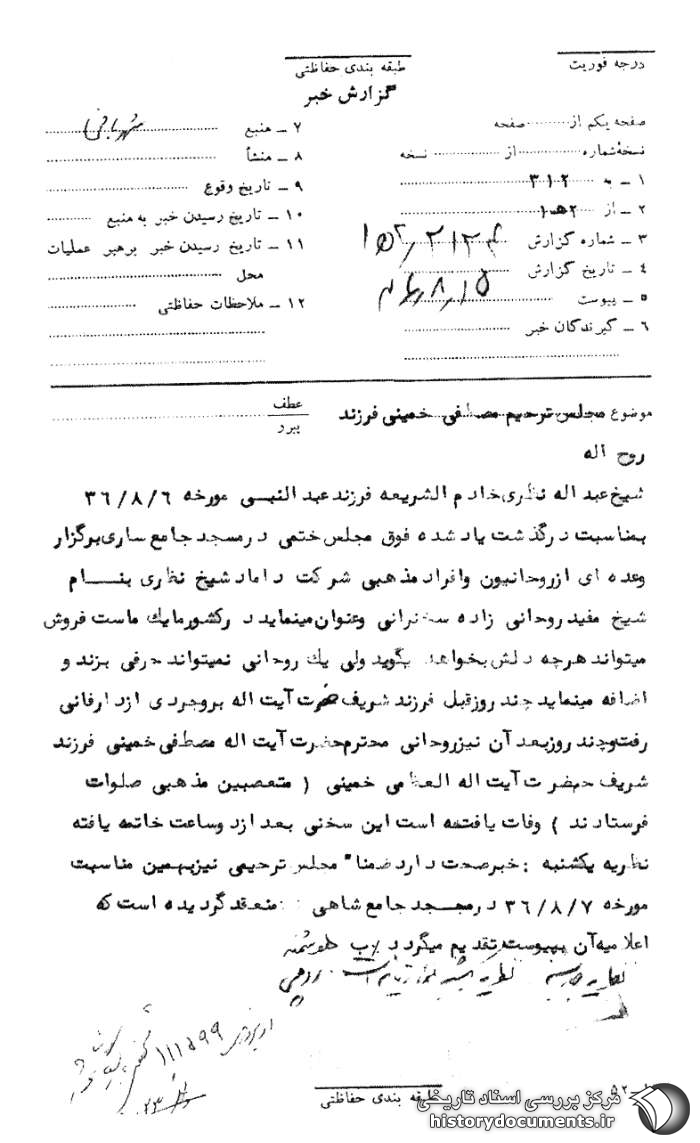 درجه فوریت
طبقه بندی حفاظتی
گزارش خبر
صفحه یکم از صفحه
نسخهٔ شماره از نسخه
۱ ـ به ۳۱۲
۲ ـ از ۲ ه‍ ۱
۳ ـ شماره گزارش
۴ ـ تاریخ گزارش
۵ ـ پیوست
۶ ـ گیرندگان خبر
۷ ـ منبع
۸ ـ منشأ
۹ ـ تاریخ وقوع
۱۰ ـ تاریخ رسیدن خبر به منبع
۱۱ ـ تاریخ رسیدن خبر برهبر عملیات
محل
۱۲ ـ ملاحظات حفاظتی
موضوع مجلس ترحیم مصطفی خمینی فرزند
عطف
روح اله
شیخ عبد اله نظری خادم الشریعه فرزند عبد النبی مورخه ۳۶/۸/۶
بمناسبت درگذشت یاد شده فوق مجلس ختمی در مسجد جامع ساری برگزار
وعده ای از روحانیون وافراد مذهبی شرکت داماد شیخ نظری بنام
شیخ مفید روحانی زاده سخنرانی وعنوان مینماید در کشور ما یك ماست فروش
میتواند هرچه دلش بخواهد بگوید ولی یك روحانی نمیتواند حرفی بزند و
اضافه مینماید چند روز قبل فرزند شریف حضرت آیت اله بروجردی از دار فانی
رفت وچند روز بعد آن نیز روحانی محترم حضرت آیت اله مصطفی خمینی فرزند
شریف حضرت آیت اله العظمی خمینی ( متعصبین مذهبی صلوات
فرستادند ) وفات یافته است این سخنی بعد از دو ساعت خاتمه یافته
نظریه یکشنبه : خبر صحت دارد ضمنا" مجلس ترحیمی نیز بهمین مناسبت
مورخه ۳۶/۸/۷ در مسجد جامع شاهی منعقد گردیده است که
اعلامیه آن بپیوست تقدیم میگردد
۱۱۱۵۹۹
طبقه بندی حفاظتی
مرکز بررسی اسناد تاریخی
historydocuments.ir